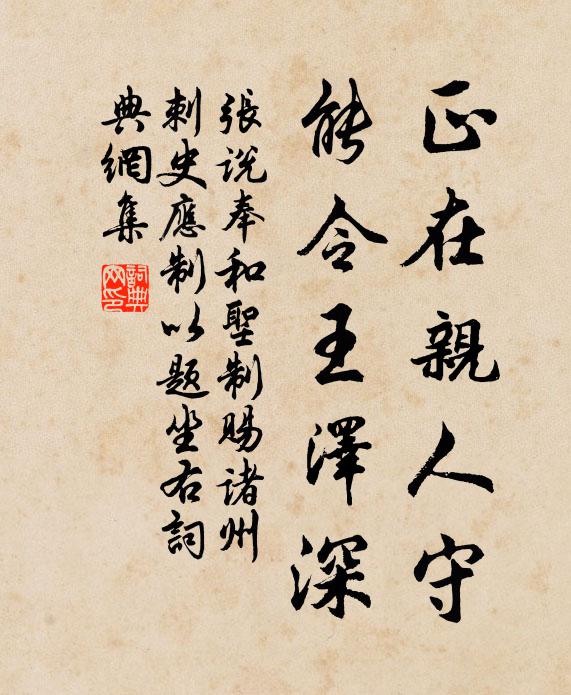 正在親人守
能令王澤深
張說奉和聖制賜諸州
刺史應制以題坐右詞
典網集
詞典網印